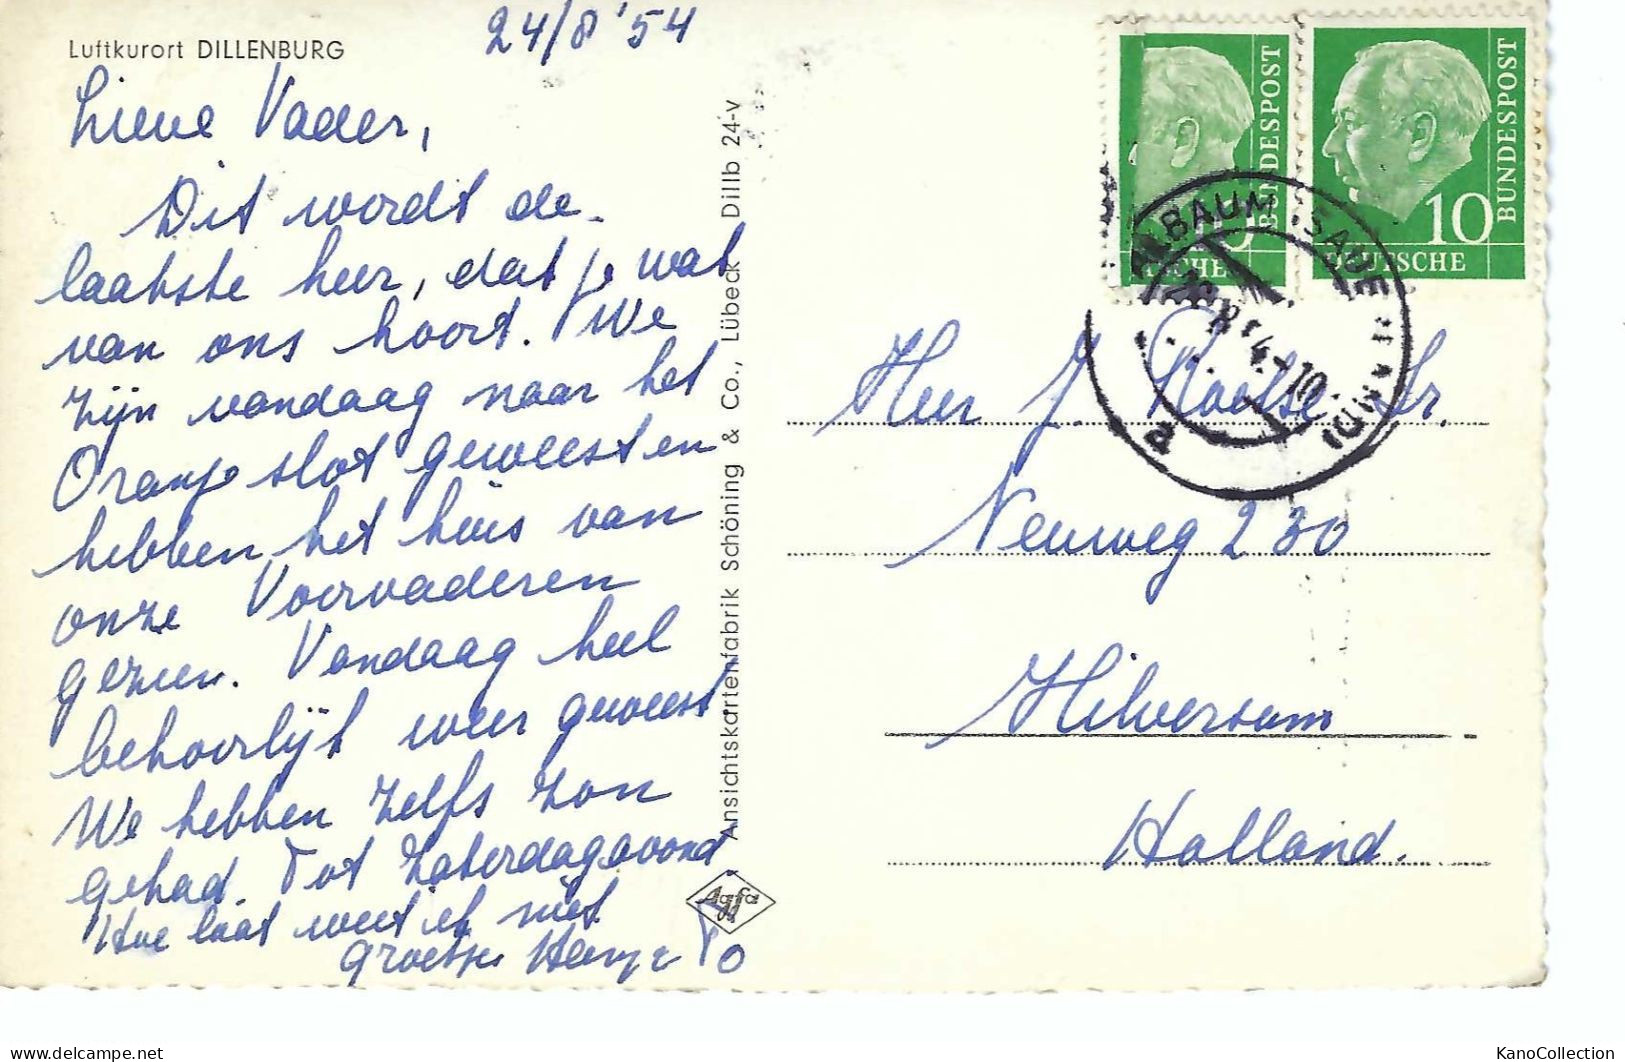 Luftkurort DILLENBURG
24/8 '54
Lieve Vader,
Dit wordt de
laatste keer, dat je wat
van ons hoort. We
zijn vandaag naar het
Oranje slot geweest en
hebben het huis van
onze Voorvaderen
gezien. Vandaag heel
behoorlijk weer geweest
We hebben zelfs zon
gehad. Tot Zaterdagavond
Hoe laat weet ik niet
groetjes
Ansichtskartenfabrik Schöning & Co., Lübeck Dillb 24-v
Agfa
BUNDESPOST
BUNDESPOST
10
DEUTSCHE
Heer J.
Neuweg 230
Hilversum
Holland.
KanoCollection
delcampe.net